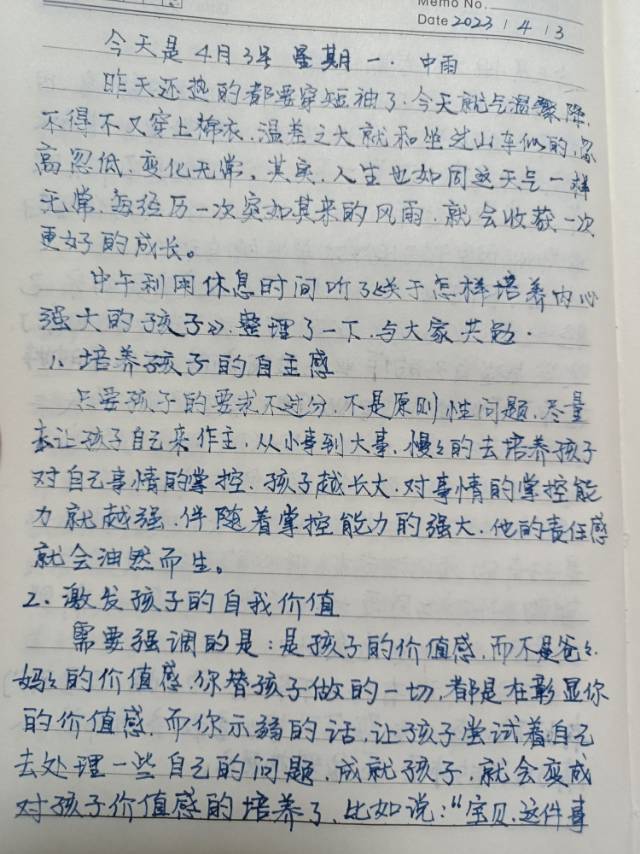 Memo No.
Date 2023 / 4 / 3
今天是4月3号 星期一. 中雨
昨天还热的都要穿短袖了.今天就气温骤降,
不得不又穿上棉衣.温差之大就和坐过山车似的,忽
高忽低.变化无常。其实,人生也如同这天气一样
无常,每经历一次突如其来的风雨.就会收获一次
更好的成长。
中午利用休息时间听了《关于怎样培养内心
强大的孩子》,整理了一下.与大家共勉.
1、培养孩子的自主感
只要孩子的要求不过分.不是原则性问题.尽量
去让孩子自己来作主,从小事到大事,慢々的去培养孩子
对自己事情的掌控.孩子越长大.对事情的掌控能
力就越强.伴随着掌控能力的强大.他的责任感
就会油然而生。
2、激发孩子的自我价值
需要强调的是:是孩子的价值感.而不是爸々
妈々的价值感.你替孩子做的一切.都是在彰显你
的价值感.而你示弱的话.让孩子尝试着自己
去处理一些自己的问题.成就孩子.就会变成
对孩子价值感的培养了.比如说:“宝贝.这件事